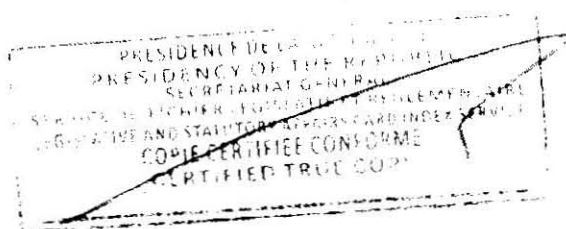 PRESIDENCE DE LA
PRESIDENCY OF THE REPUBLIC
SECRETARIAT GENERAL
FICHIER LEGISLATIF ET REGLEMENTAIRE
LEGISLATIVE AND STATUTORY AFFAIRS CARD INDEX SERVICE
COPIE CERTIFIEE CONFORME
CERTIFIED TRUE COPY